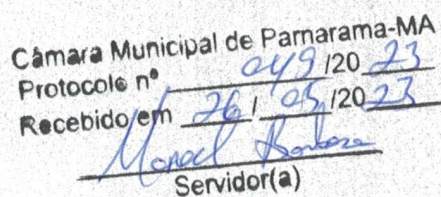 Câmara Municipal de Parnarama-MA
Protocolo nº 049/2023
Recebido em 26/05/2023
Manoel Barbosa
Servidor(a)